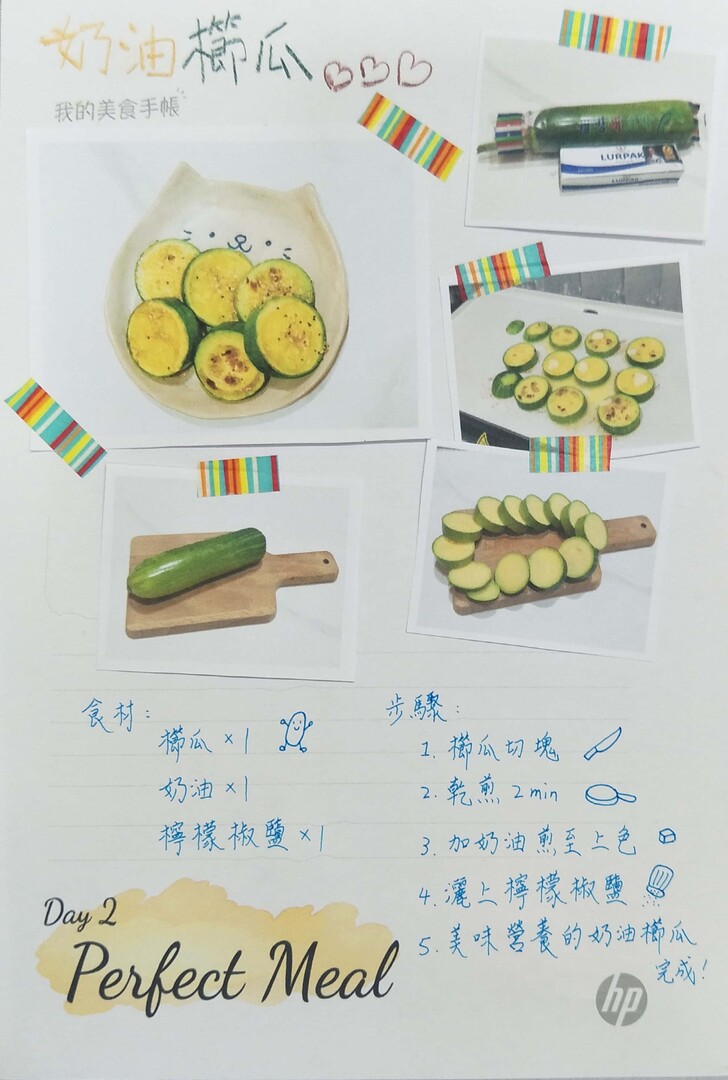 奶油櫛瓜
我的美食手帳
LURPAK
LURPAK
食材：
櫛瓜×1
奶油×1
檸檬椒鹽×1
步驟：
1. 櫛瓜切塊
2. 乾煎 2min
3. 加奶油煎至上色
4. 灑上檸檬椒鹽
5. 美味營養的奶油櫛瓜
完成！
Day 2
Perfect Meal
hp